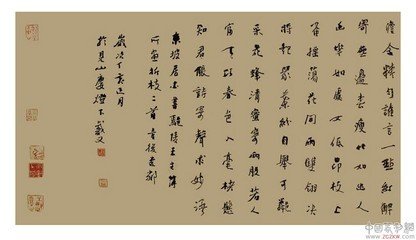 澹含精匀誰言一點紅解
寄無邊春瘦竹如幽人
幽花如處女低昂枝上
雀搖蕩花間雨雙翎決
將起衆葉紛自舉可憐
采花蜂清蜜寄兩股若人
富天巧春色入毫楮懸
知君能詩寄聲求妙語
東坡居士書鄢陵王主簿
所畫折枝二首
歲次丁亥
於見山廬燈下